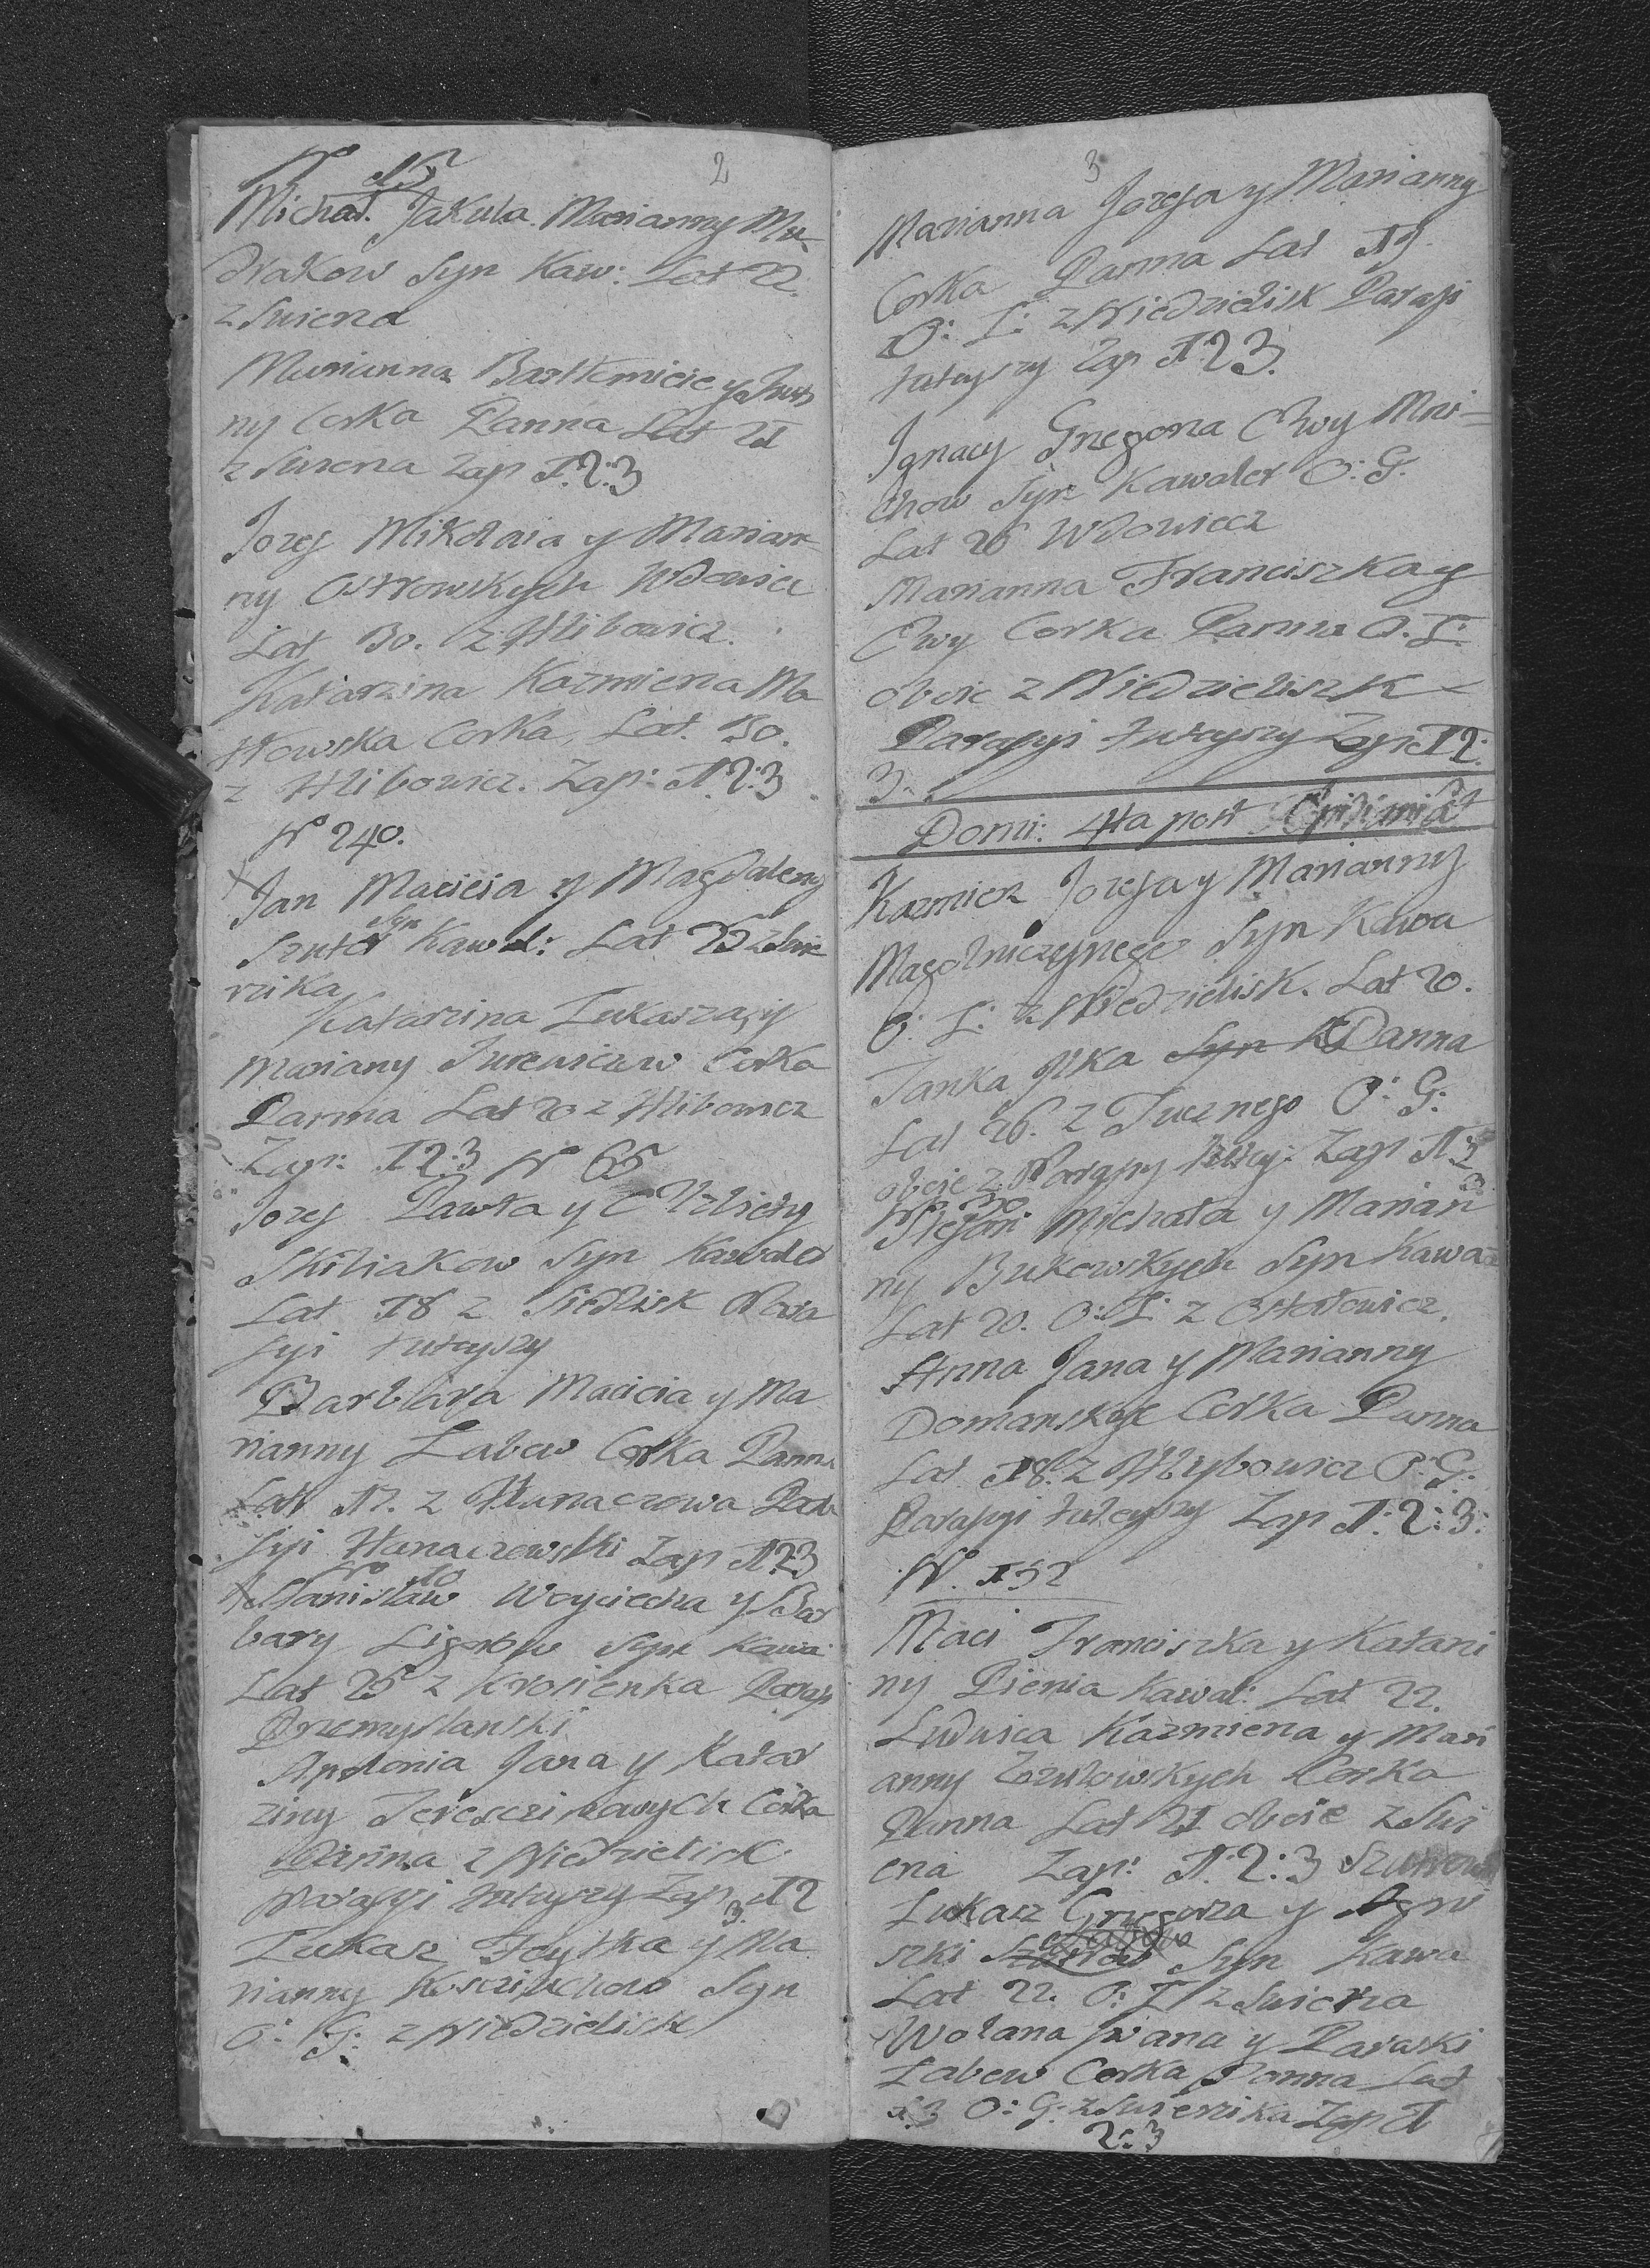 2
No 15
Michał Jakuba Marianny Mu
drakow Syn Kaw: Lat 22.
z Swierza
Marianna Bartłomieie y
ny Corka Panna Lat 21
z Swierza Zap 1:2:3
Jozef Mikołaia y Marian=
ny Ostrowskych Wdowiec
Lat 30. z Hlibowicz.
Katarzina Kazmierza Ma
łłowska Corka, Lat 30.
z Hlibowicz. Zap: 1:2:3
No 240.
Jan Macieia y Magdaleny
Szuter Syn Kawal: Lat 25 z Swie
rzika
Katarzina Łukasza y
Mariany Jurewiczow Corka
Panna Lat 20 z Hlibowicz
Zap: 1 2:3 No 65
Jozef Pawła y
Skibiakow Syn Kawaler
Lat 18 z Siedlisk Para
fyi tuteyszy
Barbara Macieia y Ma
rianny Łabew Corka Panna
Lat 17. z Hanaczowa Para
fyi Hanaczewski Zap 1 2 3
No 10
Stanisław Woyciecha y Bar
bary Ligezow Syn Kawa
Lat 25 z Krosienka Parafi
Przemyslanski
Apolonia Jana y Katar
ziny Corka
Panna z Niedzielisk
Parafyi tuteyszy Zap 1 2
3.
Łukasz Fedka y Ma
rianny Syn
O: G: z Niedzielisk
3
Marianna Jozefa y Marianny
Corka Panna Lat 19.
O: Ł: z Niedzielisk Parafi
tuteyszy Zap 1 2 3.
Ignacy Gregora Ewy Mni=
chow Syn Kawaler O: G.
Lat 26 Wdowiecz
Marianna Franciszka y
Ewy Corka Panna O. Ł:
oboie z Niedzieliszk
Parafyi tuteyszy Zap 1 2:
3.
Domi: 4ta post Epifimiat
Kazmierz Jozefa y Marianny
Syn Kawa
O: Ł: z Niedzielisk. Lat 20.
Janka Ilka Syn K Panna
Lat 26. z Tucznego O: G:
oboie z Parafiy tutey: Zap 1 2
3
No 30
Stefan Michała y Marian
ny Bukowskych Syn Kawa
Lat 20. O: Ł: z Ostałowicz.
Anna Jana y Marianny
Domanskych Corka Panna
Lat 18. z Hlybowicz O: G:
Parafyi tuteyszy Zap 1: 2: 3:
No. 152
Maci Franciszka y Katarzi
ny Pienia Kawal: Lat 22.
Ludwica Kazmierza y Mari
anny Corka
Panna Lat 21 oboie z Swi
erza Zap: 1: 2: 3
Łukasz Grzegorza y Agni
szki Syn Kawa
Lat 22. O: Ł z Swierza
Wołana Iwana y Paraski
Łabew Corka Panna Lat
O: G: z Swierzika Zap 1
2: 3